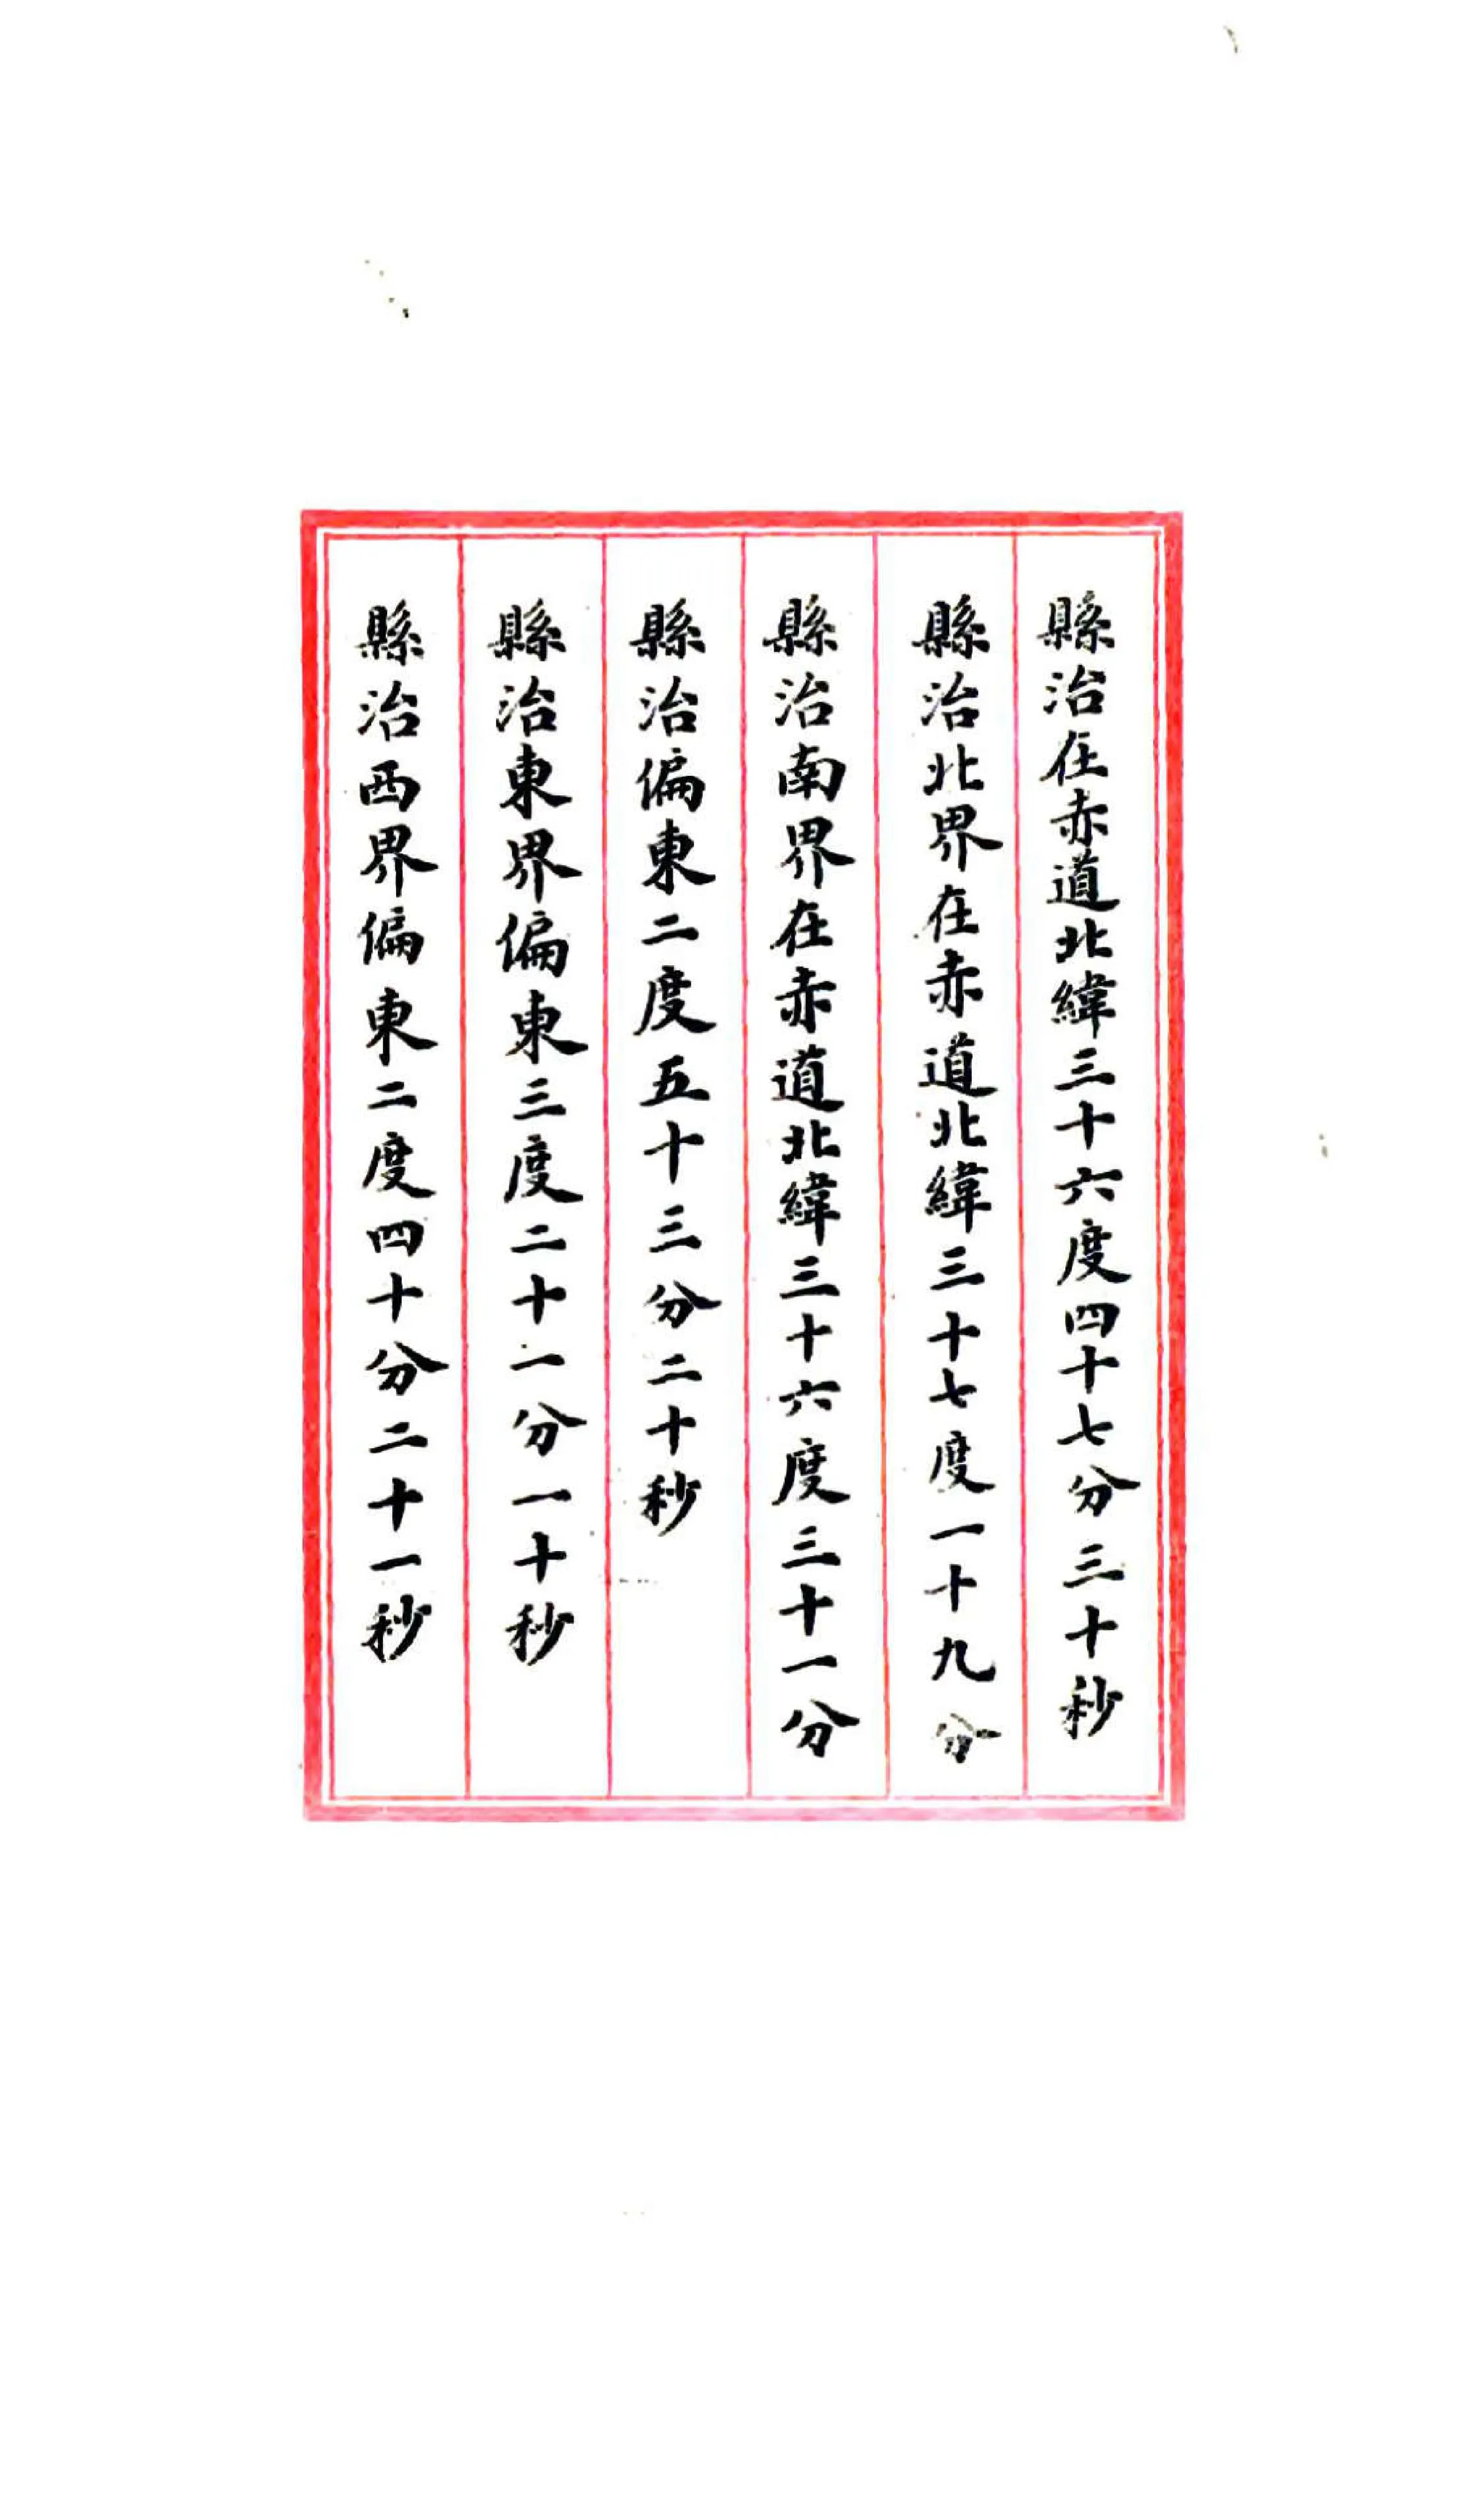 縣治在赤道北緯三十六度四十七分三十秒
縣治北界在赤道北緯三十七度一十九分
縣治南界在赤道北緯三十六度三十一分
縣治偏東二度五十三分二十秒
縣治東界偏東三度二十一分一十秒
縣治西界偏東二度四十分二十一秒